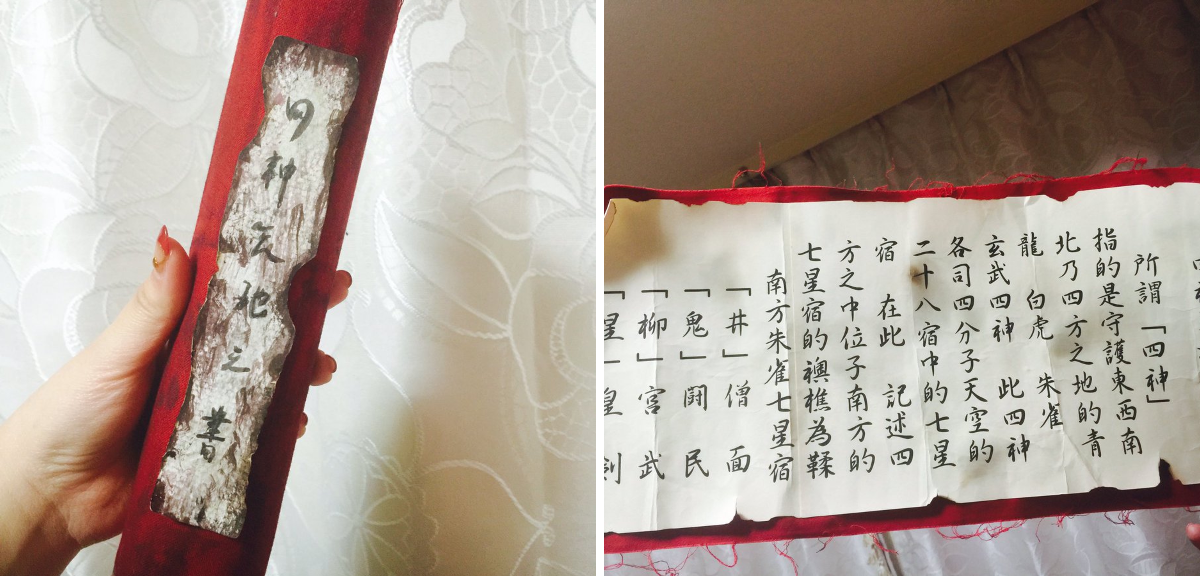 四神天地之書
所謂「四神」
指的是守護東西南
北乃四方之地的青
龍 白虎 朱雀
玄武四神 此四神
各司四分子天空的
二十八宿中的七星
宿 在此 記述四
方之中位子南方的
七星宿的襖樵為鞣
南方朱雀七星宿
「井」僧 面
「鬼」鬪 民
「柳」宮 武
「星」皇 剣